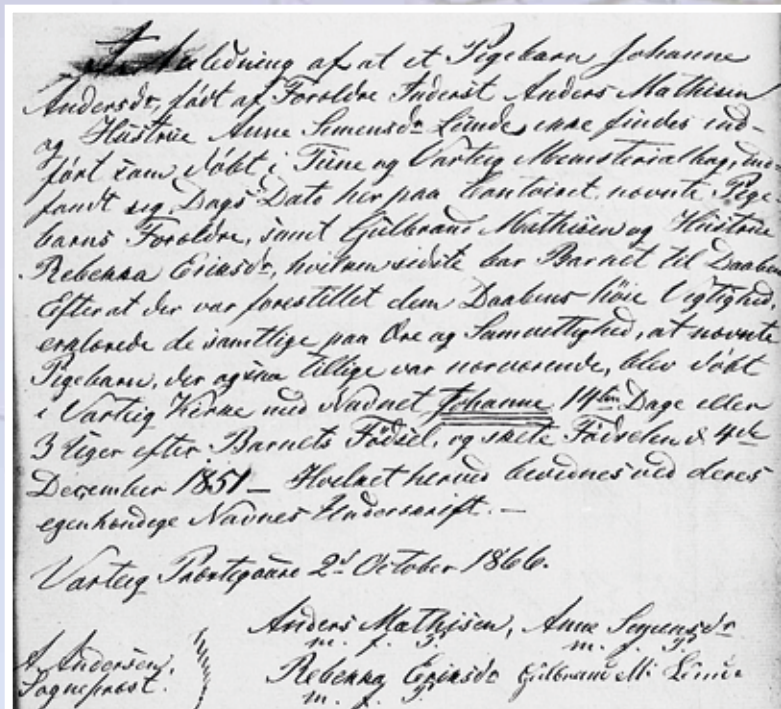 I Anledning af at et Pigebarn Johanne
Andersdr, født af Foreldre Inderst Anders Mathisen
og Hustrue Anne Simensdr Lunde ikke findes ind-
ført som døbt i Tune og Varteig Ministerialbog, ind-
fandt sig Dags Dato her paa Contoiret nævnte Pige
barns Foreldre, samt Gulbrand Mathisen og Hustrue
Rebekka Eriksdr, hvilken sidste bar Barnet til Daaben
Efterat der var forestillet dem Daabens høie Vigtighed,
erklærede de samtlige paa Ære og Samvittighed, at nævnte
Pigebarn, der ogsaa tillige var nærværende, blev døbt
i Varteig Kirke med Navnet Johanne 14ten Dage eller
3 Uger efter Barnets Fødsel, og skete Fødselen d. 4de
December 1851 – Hvilket herved bevidnes ved deres
egenhændige Navnes Underskrift. –
Varteig Præstegaard 2d October 1866.
Anders Mathisen, Anne Simensdr
m. f. P. m. f. P.
A. Andersen, Rebekka Eriksdr Gulbrand M. Lunde
Sognepræst. m. f. P.